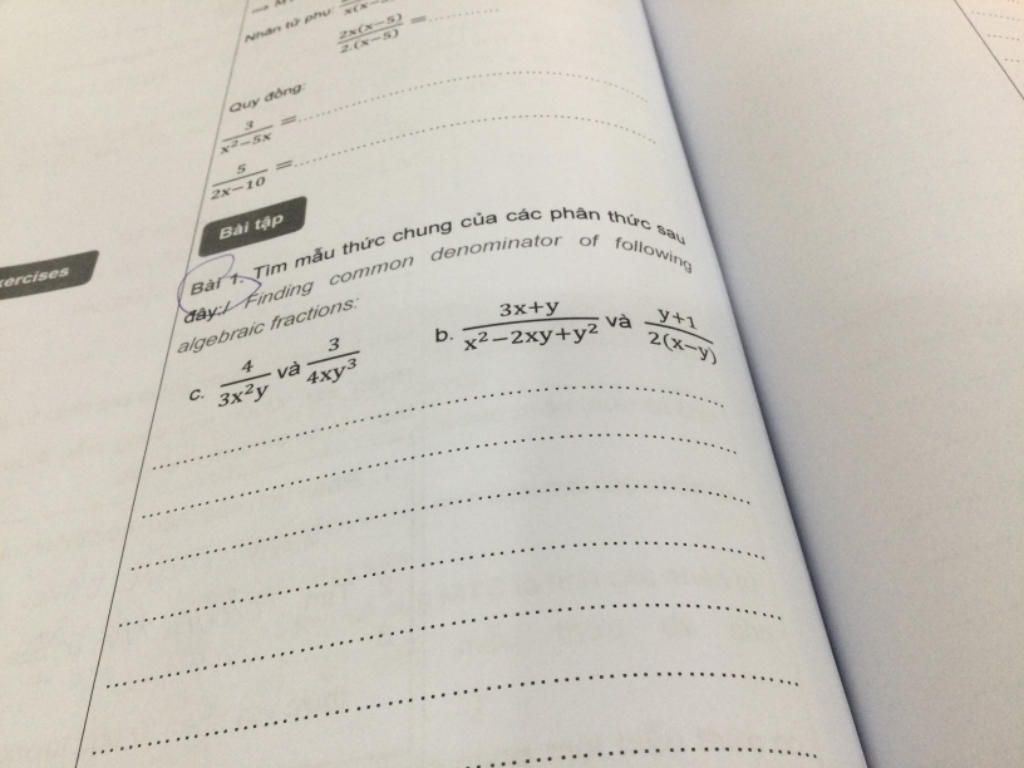 Nhân tử phụ:
2x(x−5)/2.(x−5) =..........
Quy đồng:
3/x²−5x =..........
5/2x−10 =..........
Bài tập
xercises
Bài 1. Tìm mẫu thức chung của các phân thức sau
đây:/ Finding common denominator of following
algebraic fractions:
c. 4/3x²y và 3/4xy³ b. 3x+y/x²−2xy+y² và y+1/2(x−y)